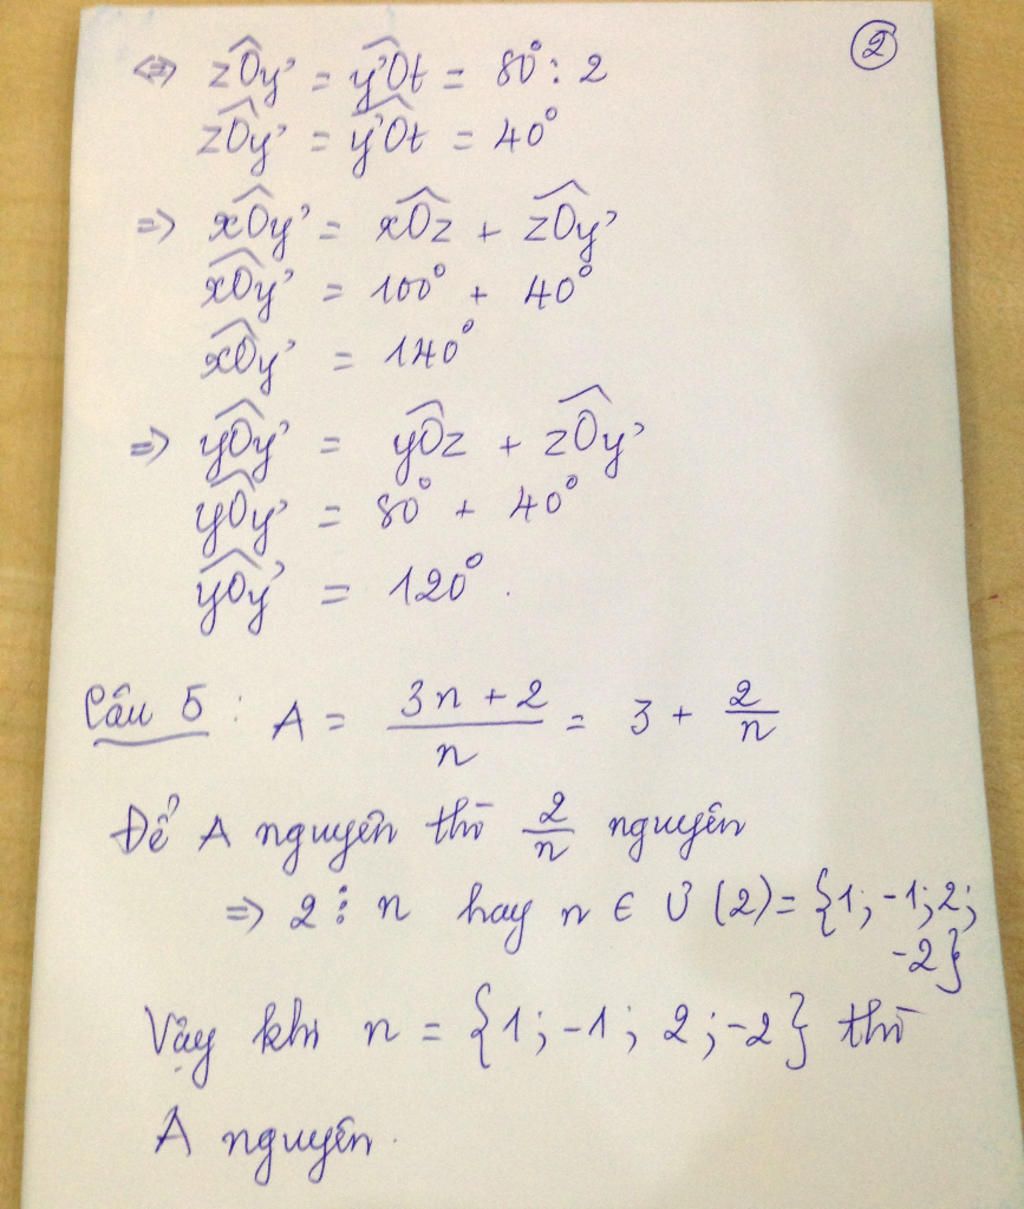 ②
⇔ zÔy' = y'Ôt = 80° : 2
zÔy' = y'Ôt = 40°
=> xÔy' = xÔz + zÔy'
xÔy' = 100° + 40°
xÔy' = 140°
=> yÔy' = yÔz + zÔy'
yÔy' = 80° + 40°
yÔy' = 120°.
Câu 5 : A = (3n + 2)/n = 3 + 2/n
Để A nguyên thì 2/n nguyên
=> 2 ⋮ n hay n ∈ Ư (2) = {1; -1; 2;
-2}
Vậy khi n = {1; -1; 2; -2} thì
A nguyên.